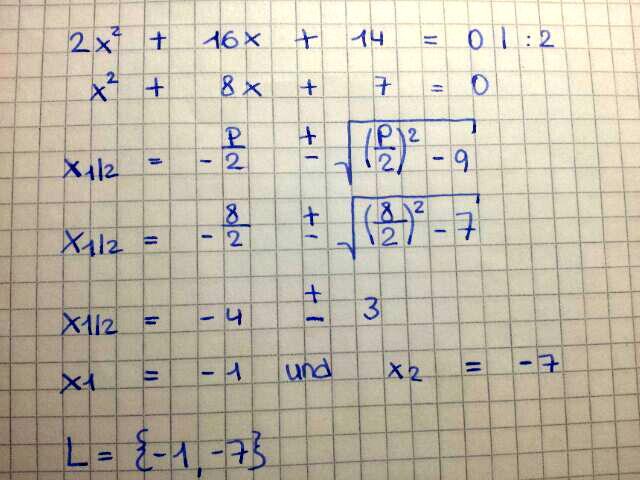 2x² + 16x + 14 = 0 | :2
x² + 8x + 7 = 0
x1/2 = - P/2 ± √((P/2)² - 9)
x1/2 = - 8/2 ± √((8/2)² - 7)
x1/2 = - 4 ± 3
x1 = - 1 und x2 = - 7
L = {-1, -7}